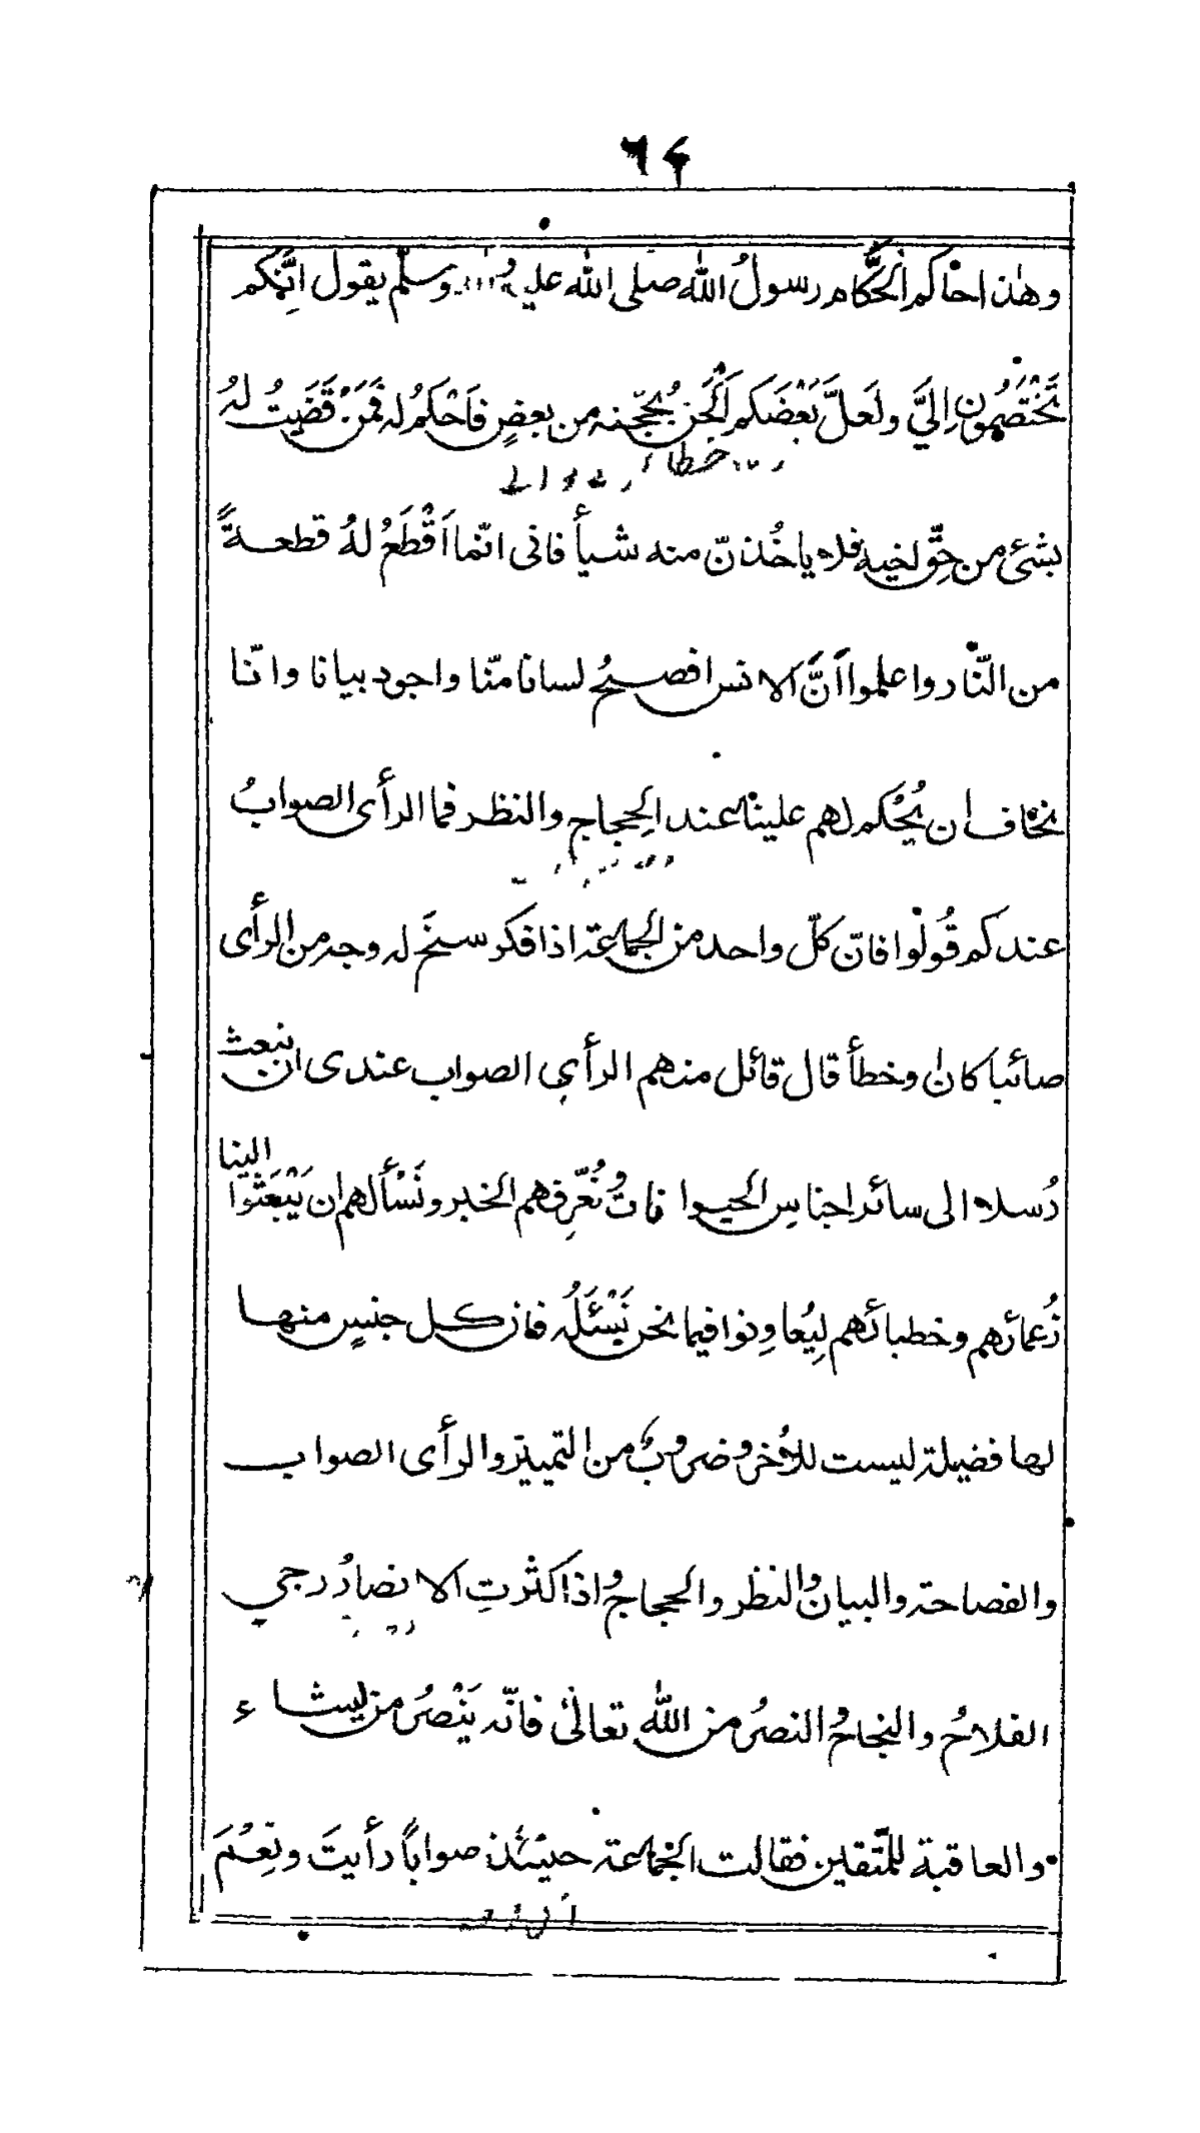 ٦٤
وهٰذا احْاكم الحُكَّام رسولُ اللّٰه صلى اللّٰه عليه وسلّم يقول اِنّكم
تَخْتَصِمُون اِليَّ ولعَلَّ بَعْضَكم اَلْحَن بُحجّته من بعضٍ فاَحْكمُ له فَمَنْ قَضَيتُ لهُ
بشئ من حقّ لخيه فلا ياخُذنّ منه شيأ فانى انّما اَقْطَعُ لهُ قطعةً
من النّار واعلموا اَنَّ الانس افصحُ لسانا منّا واجود بيانا وانّا
نخاف ان يُحْكم لهم علينا عند الحِجاج والنظر فما الرأى الصوابُ
عندكم قُولُوا فانّ كلّ واحد من الجماعة اذا فكر سنَح له وجه من الرأى
صائبا كان وخطأ قال قائل منهم الرأي الصواب عندى ان نبعث
رُسلا الى سائر اجناس الحيوانات ونُعرِّفهم الخبر ونَسْأَلهم ان يَبْعَثُوا الينا
زُعمائهم وخطبائهم لِيُعاوِنوا فيما نحن نَسْئَلُه فان كل جنسٍ منها
لها فضيلة ليست للاُخرى وضروبٌ من التمييز والرأى الصواب
والفصاحة والبيان والنظر والحجاج واذا كثرتِ الانصارُ رجي
الفلاحُ والنجاحُ النصرُ من اللّٰه تعالىٰ فانّه يَنْصُرُ من يشاء
والعاقبة للمتّقين فقالت الجماعة حينئذ صوابًا رأيتَ ونِعْمَ